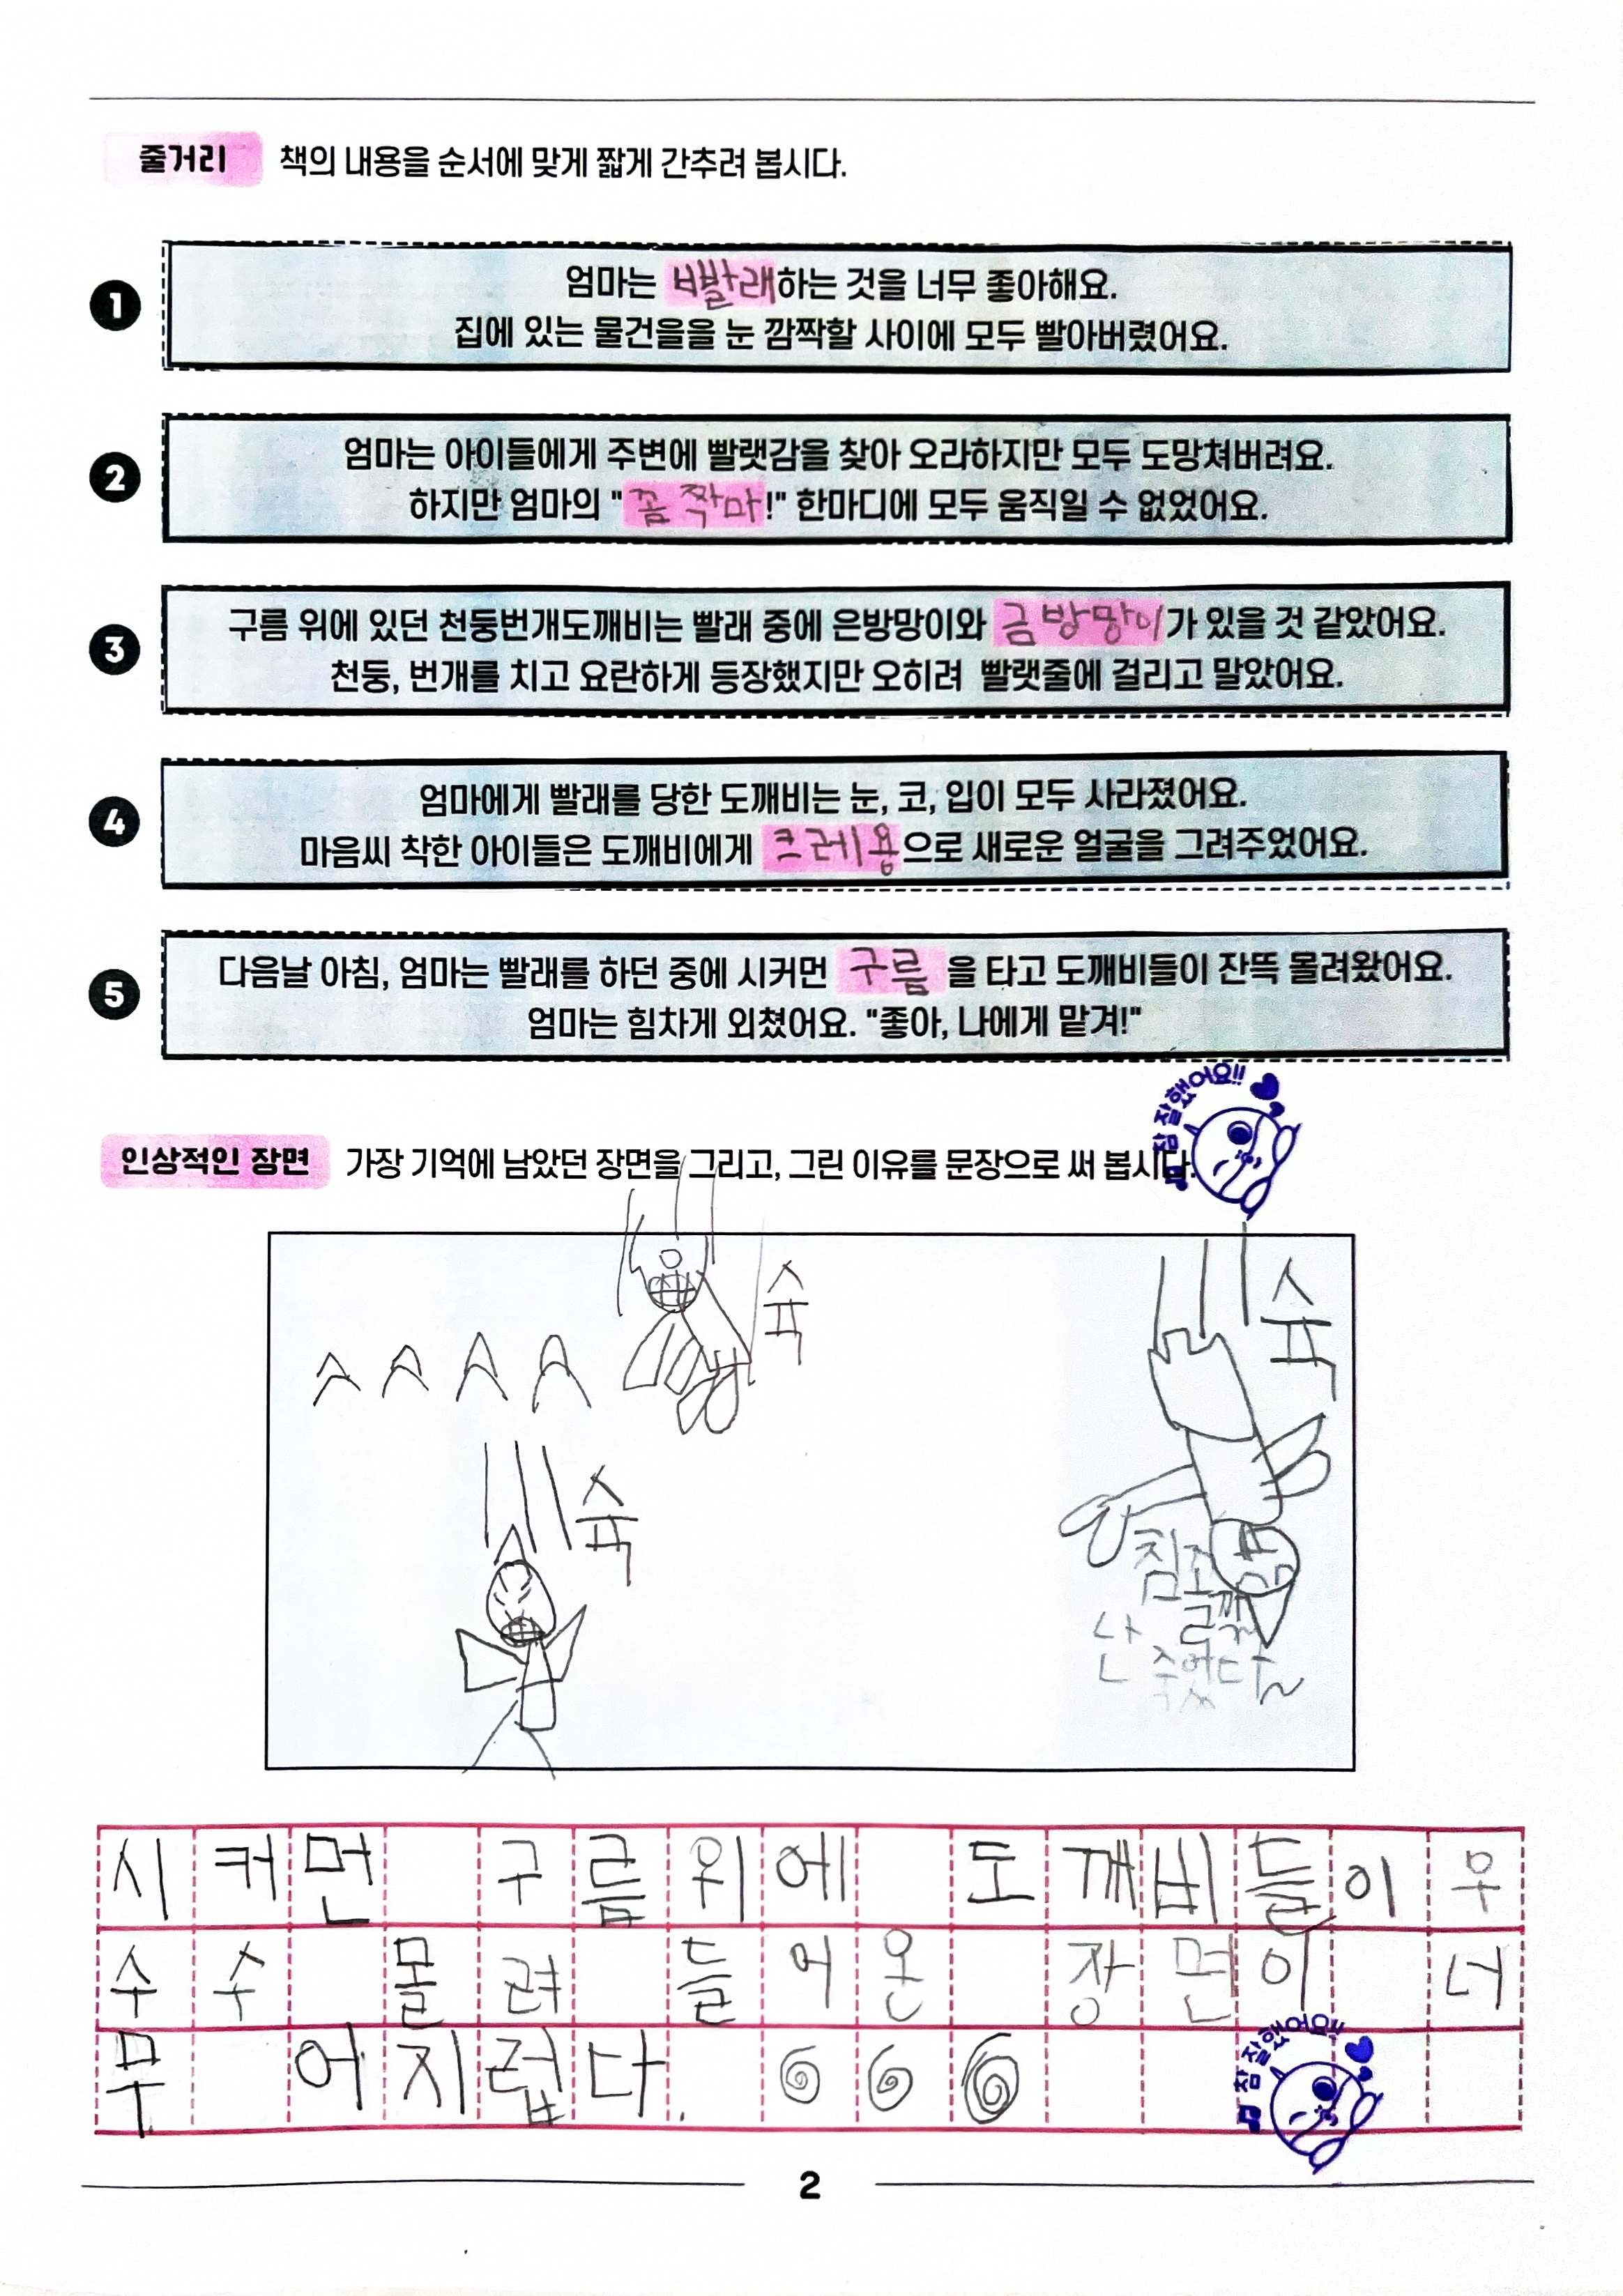 줄거리 책의 내용을 순서에 맞게 짧게 간추려 봅시다.
1 엄마는 빨래하는 것을 너무 좋아해요.
집에 있는 물건을을 눈 깜짝할 사이에 모두 빨아버렸어요.
2 엄마는 아이들에게 주변에 빨랫감을 찾아 오라하지만 모두 도망쳐버려요.
하지만 엄마의 "꼼짝마!" 한마디에 모두 움직일 수 없었어요.
3 구름 위에 있던 천둥번개도깨비는 빨래 중에 은방망이와 금방망이가 있을 것 같았어요.
천둥, 번개를 치고 요란하게 등장했지만 오히려 빨랫줄에 걸리고 말았어요.
4 엄마에게 빨래를 당한 도깨비는 눈, 코, 입이 모두 사라졌어요.
마음씨 착한 아이들은 도깨비에게 크레용으로 새로운 얼굴을 그려주었어요.
5 다음날 아침, 엄마는 빨래를 하던 중에 시커먼 구름을 타고 도깨비들이 잔뜩 몰려왔어요.
엄마는 힘차게 외쳤어요. "좋아, 나에게 맡겨!"
참 잘했어요!!
인상적인 장면 가장 기억에 남았던 장면을 그리고, 그린 이유를 문장으로 써 봅시다.
슉
슉
슉
난 죽었다~
시커먼 구름위에 도깨비들이 우
수수 몰려 들어온 장면이 너
무 어지럽다.
참 잘했어요!!
2